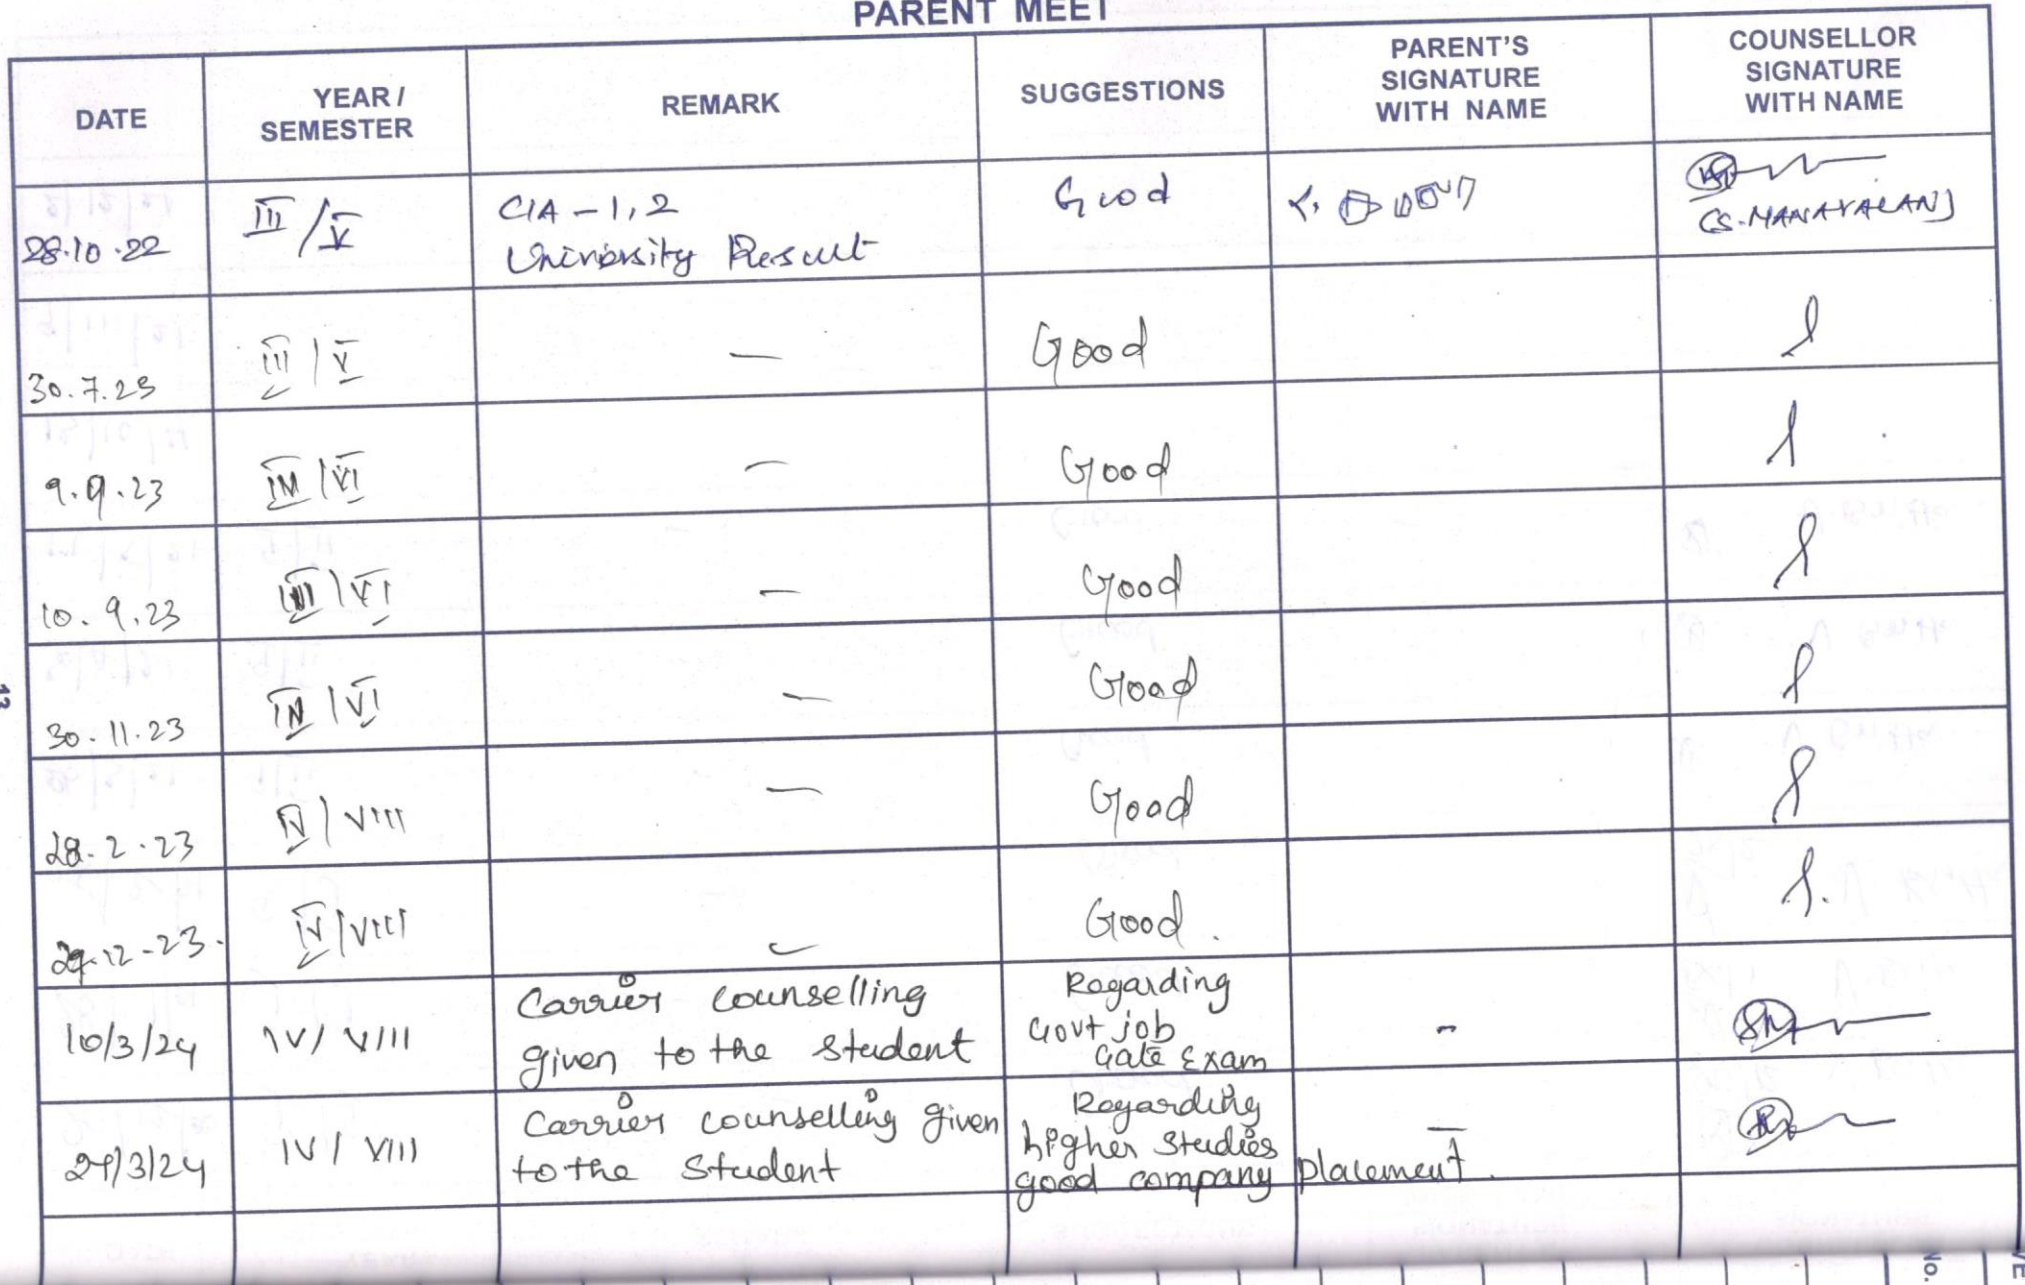 PARENT MEET
DATE
YEAR /
SEMESTER
REMARK
SUGGESTIONS
PARENT'S
SIGNATURE
WITH NAME
COUNSELLOR
SIGNATURE
WITH NAME
28.10.22
III / V
CIA - 1, 2
University Result
Good
(S. MANAVALAN)
30.7.23
III / V
—
Good
9.9.23
Good
—
10.9.23
III / VI
—
Good
30.11.23
—
Good
28.2.23
IV / VIII
—
Good
29.12.23.
IV / VIII
Good.
10/3/24
IV / VIII
Carrier counselling
given to the student
Regarding
Govt job
Gate Exam
-
IV / VIII
Carrier counselling given
to the student
Regarding
higher studies
good company placement.
—
13
No.